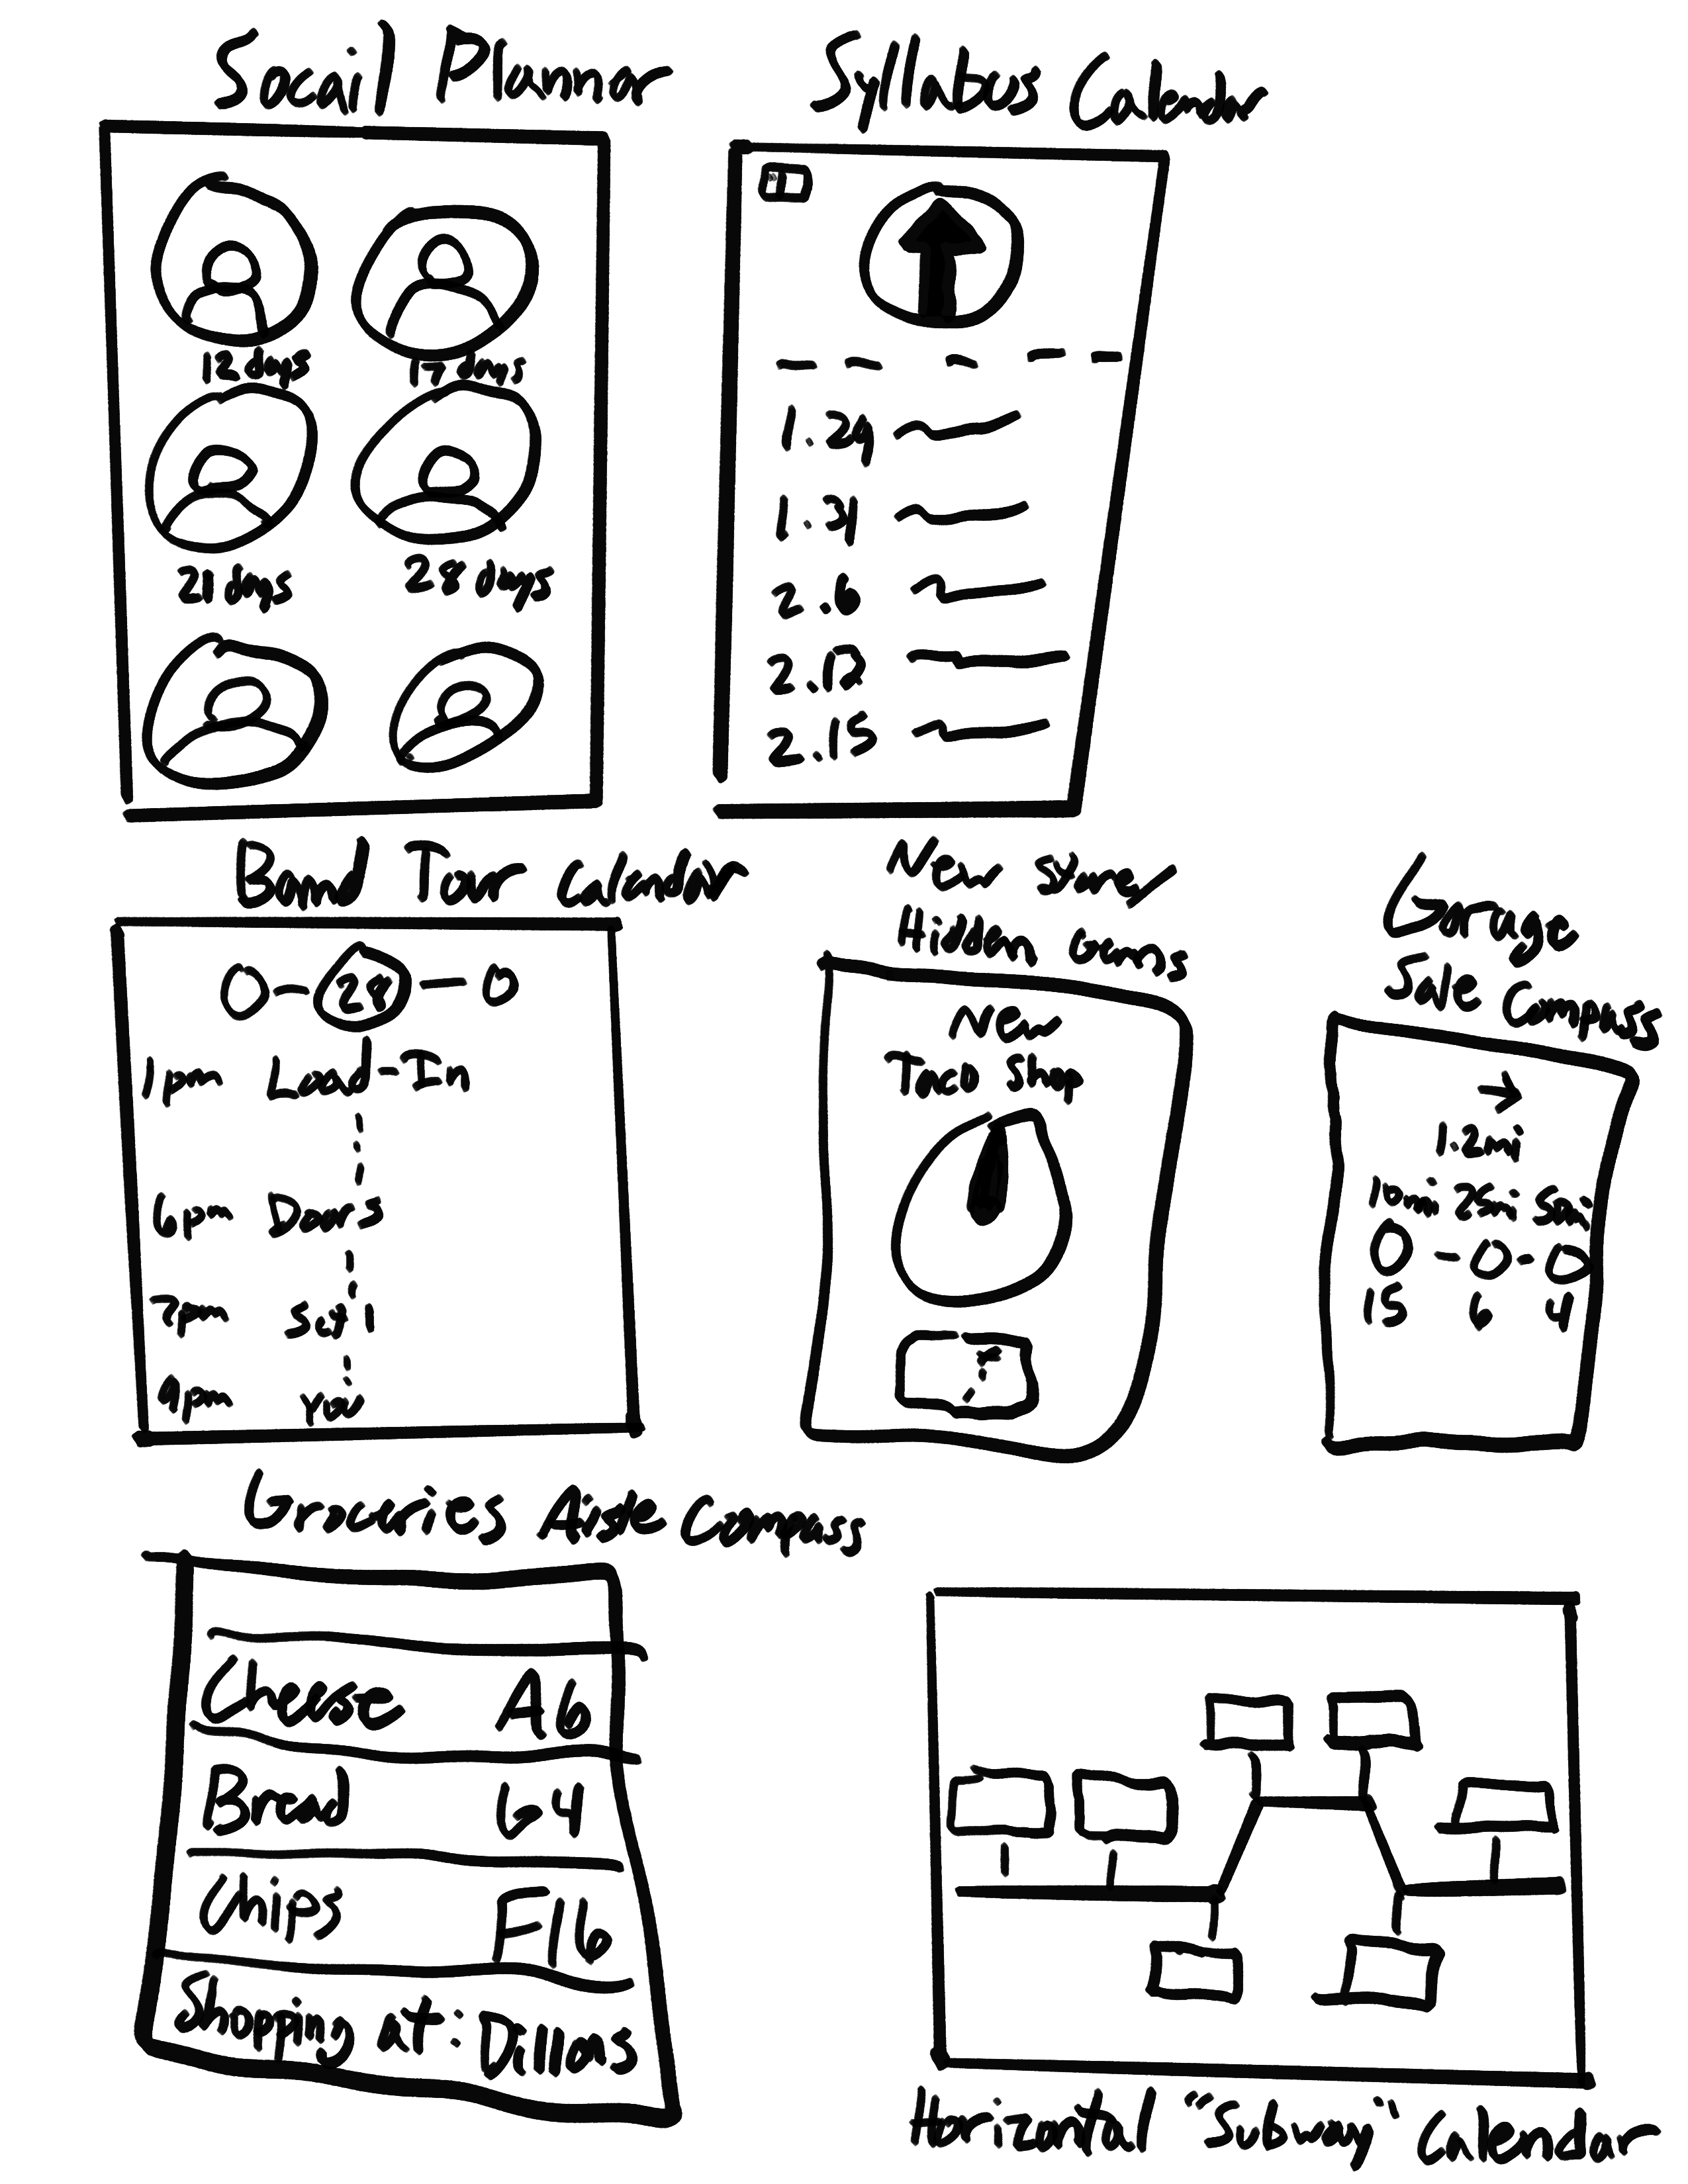 Socail Plannar
Syllabus Calendar
12 days
17 days
21 days
28 days
1.29
1.31
2.6
2.12
2.15
Band Tour Calendar
28
1pm Load-In
6pm Doors
7pm Set 1
9pm You
New
Hidden Gems
New
Taco Shop
Garage
Sale Compass
1.2mi
10mi 25mi 50mi
15 6 4
Groceries Aisle Compass
Cheese A6
Bread G4
Chips F16
Shopping at: Dillons
Horizontal "Subway" Calendar